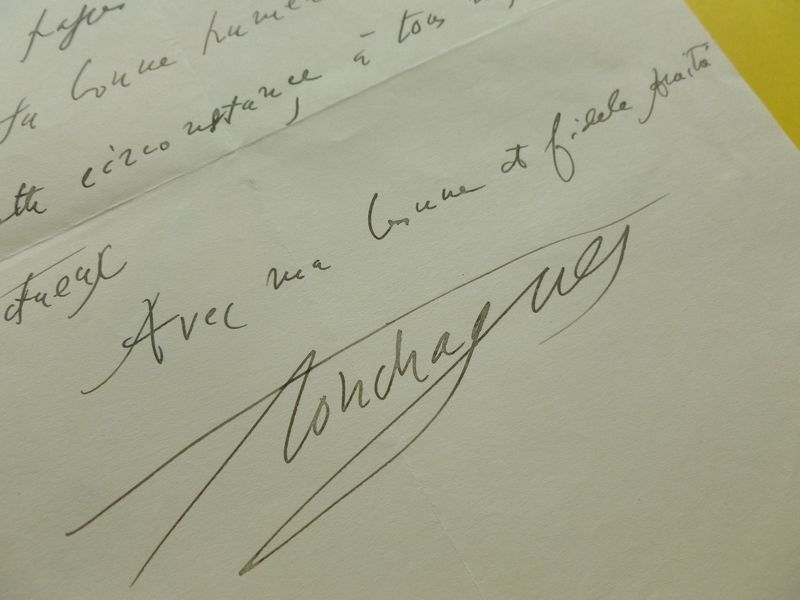 pages
ta bonne
circonstance à tous
ctueux
Avec ma bonne et fidele amitié
Touchagues